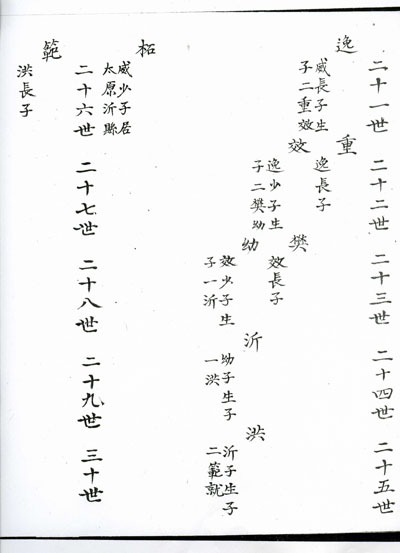 二十一世 二十二世 二十三世 二十四世 二十五世
逸
威長子生
子二重效
重
逸長子
效
逸少子生
子二樊幼
樊
效長子
幼
效少子生
子一沂
沂
幼子生子
一洪
洪
沂子生子
二範就
柘
威少子居
太原沂縣
二十六世 二十七世 二十八世 二十九世 三十世
範
洪長子